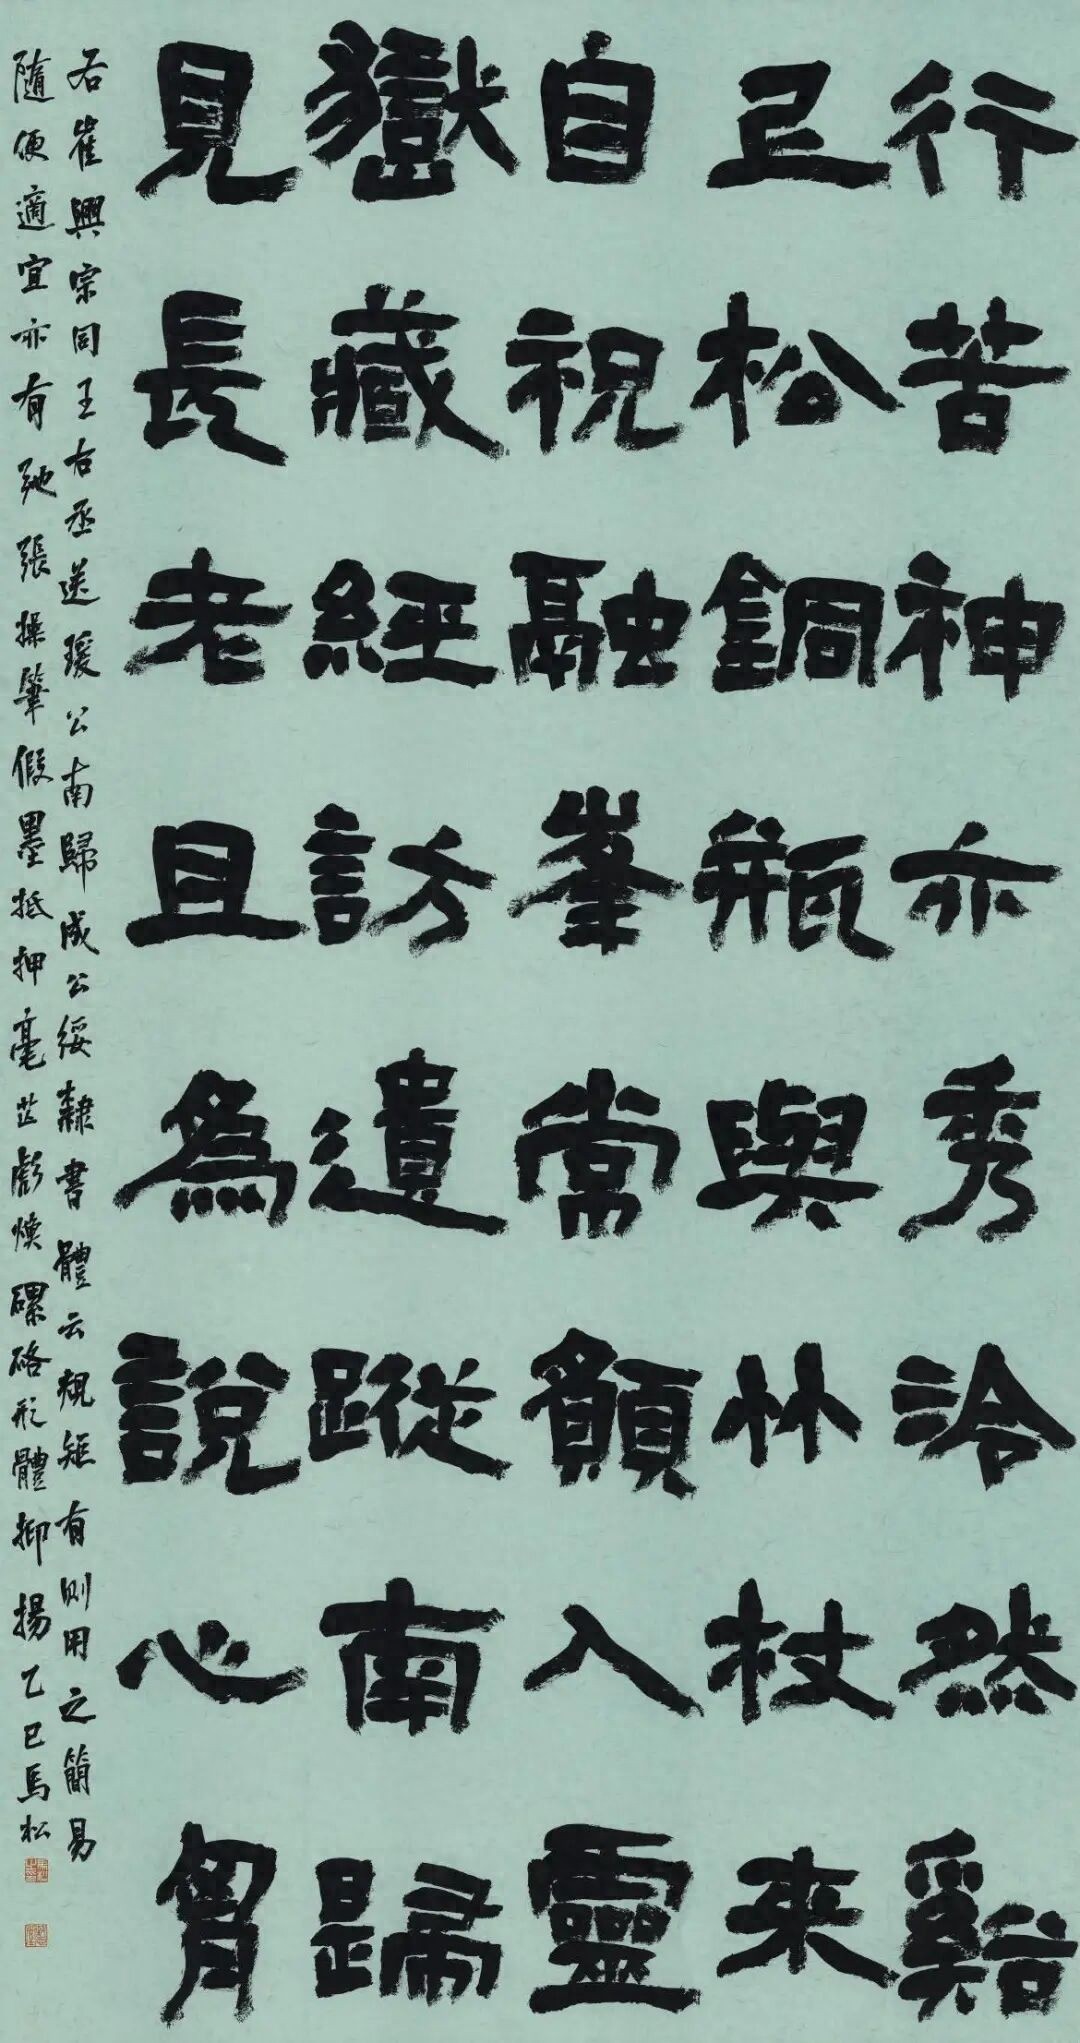 行苦神亦秀泠然谿
上松銅瓶與竹杖來
自祝融峯常願入靈
嶽藏經訪遺蹤南歸
見長老且為說心胷
右崔興宗同王右丞送瑗公南歸成公綏隸書體云規矩有則用之簡易
隨便適宜亦有弛張操筆假墨抵押毫芒彪煥磥硌形體抑揚乙巳馬松